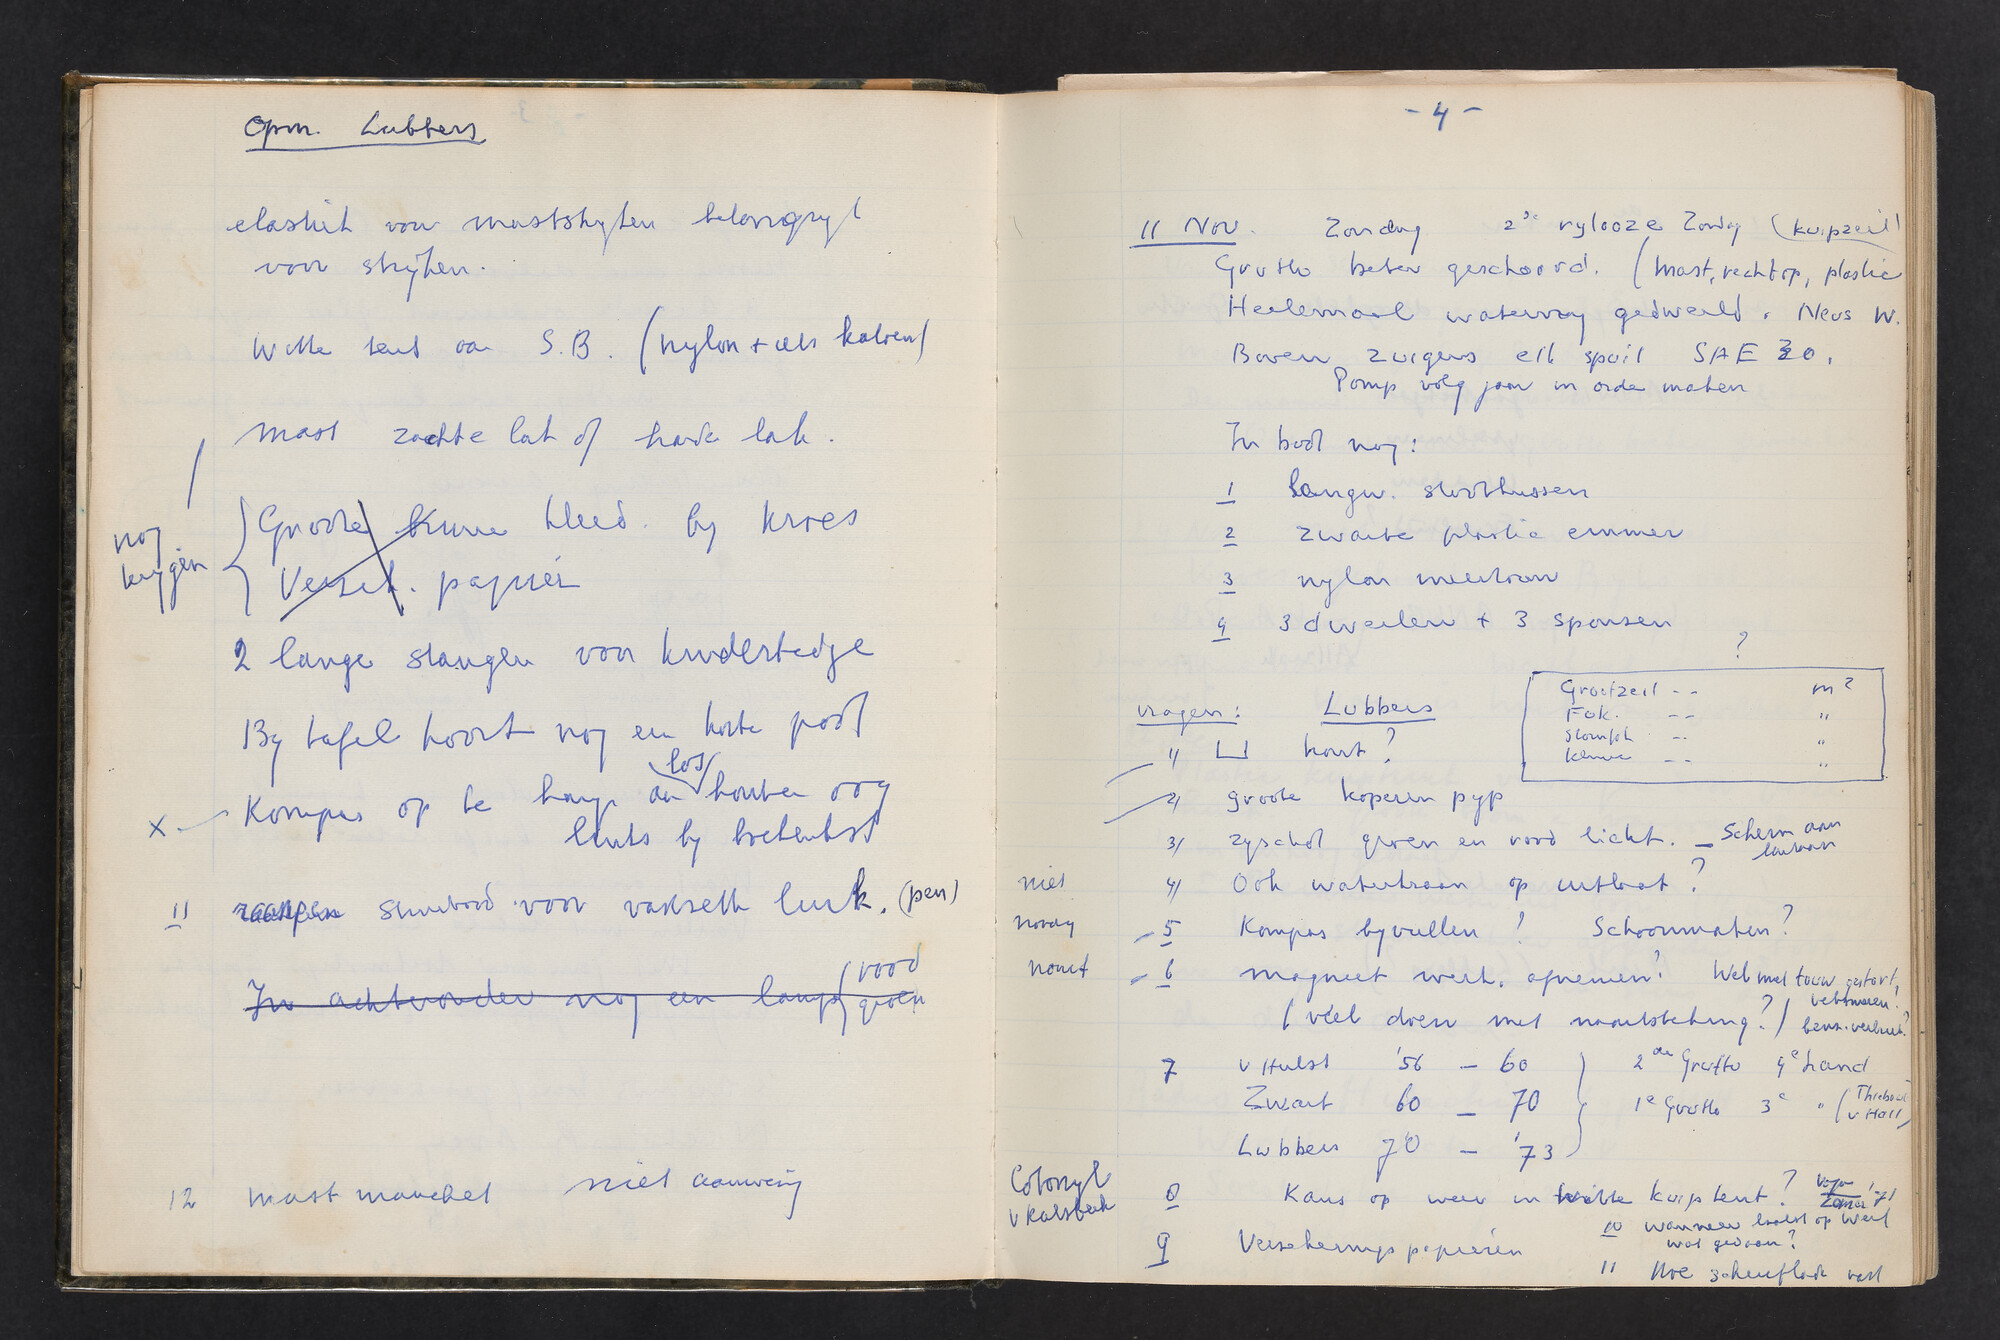 Opm. Lubbers
elastiek voor mastshyten belangryk
voor stryken.
Witte tent van S.B. (nylon +
mast zachte lak of harde lak.
nog
krygen
Groote kluue kleed. by kroes
Verzek. papier
2 lange stangen voor kinderbedje
By tafel hoort nog een korte poot
los
Kompas op te hangen aan houten oog
x
links by
11 stuurboord voor vakzeth luik. (pen)
In achteronder nog een lamp (rood
groen
12 mast manchet niet aanwezig
- 4 -
11 Nov. Zondag 2de vylooze Zondag (kuipzeil)
Grotto beter geschoord. (mast, rechtop, plastic
Heelemaal watervry gedweild. Neus W.
Boven zuigers elk spuit SAE 30.
Pomp volg jaar in orde maken
In boot nog:
1 langw. stootkussen
2 zwarte plastic emmer
3 nylon meertouw
4 3 dweilen + 3 sponsen
?
Grootzeil -- m2
Fok. -- "
stompk -- "
kluue -- "
vragen: Lubbers
1) hout?
2) groote koperen pyp
3) zyschot groen en rood licht. - Scherm aan
lantaarn
niet 4) Ook waterkraan op uitlaat?
noray 5 Kompas byvullen! Schoonmaken?
nonet 6 magneet werk. afnemen? Web met touw gestart,
vetsmeren!
(veel doen met noodsbehug?) benz. verbruik?
7 v Hulst '56 - 60 2de Grotto 4e hand
Zwart 60 - 70 1e Grotto 3e " (Thiebout
v Hall)
Lubbers 70 - '73
Colonyl
v Kalsbeek
8 Kans op weer in witte kuiptent? voor
Zomer
9 Verzekerings papieren
10 wanneer laatst op werf
wat gedaan?
11 Hoe vast